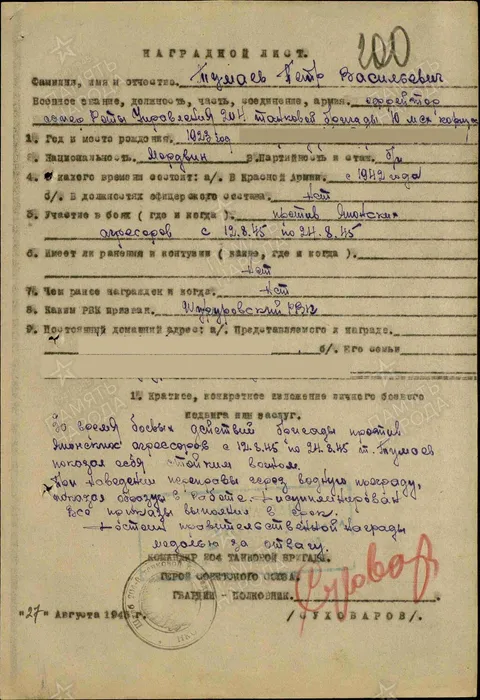 200
НАГРАДНОЙ ЛИСТ.
Фамилия, имя и отчество. Тумаев Петр Васильевич
Военное звание, должность, часть, соединение, армия. ефрейтор
Роты Управления 204 танковой бригады 10 мех корпуса
1. Год и место рождения. 1923 год
2. Национальность. Мордвин 3. Партийность и стаж. б/п
4. С какого времени состоит: а/. В Красной Армии. с 1942 года
б/. В должностях офицерского состава. нет
5. Участие в боях ( где и когда ). против Японских
агрессоров с 12.8.45 по 24.8.45
6. Имеет ли ранения и контузии ( какие, где и когда ).
нет
7. Чем ранее награжден и когда. нет
8. Каким РВК призван. РВК
9. Постоянный домашний адрес: а/. Представляемого к награде.
б/. Его семьи
1. Краткое, конкретное изложение личного боевого
подвига или заслуг.
За время боевых действий бригады против
Японских агрессоров с 12.8.45 по 24.8.45 т. Тумаев
показал себя стойким воином.
При наведении переправы через водную преграду,
показал образцы в работе. Дисциплинирован
Все приказы выполнял в срок.
Достоин правительственной награды
медалью за отвагу.
КОМАНДИР 204 ТАНКОВОЙ БРИГАДЫ
ГЕРОЙ СОВЕТСКОГО СОЮЗА.
ГВАРДИИ - ПОЛКОВНИК.
"27" Августа 1945 г. /СУХОВАРОВ/.